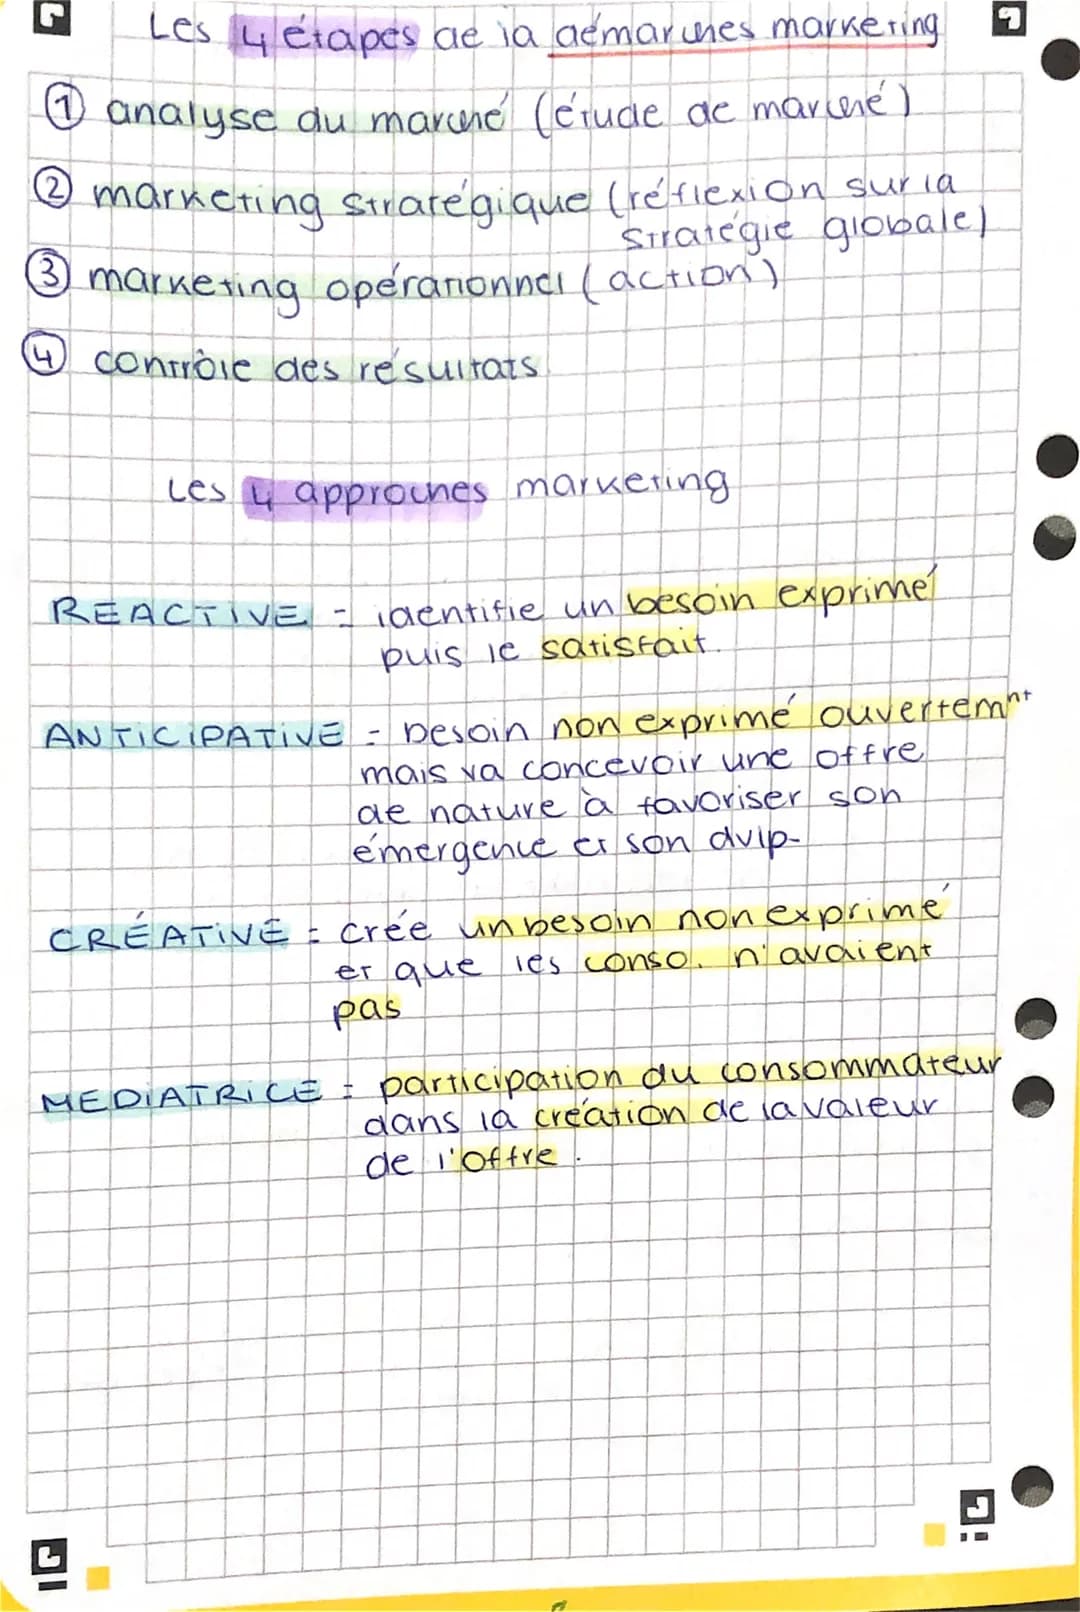 Les 4 étapes de la démarches marketing
① analyse du marché (étude de marché)
② marketing stratégique (réflexion sur la
stratégie globale)
③ marketing opérationnel (action)
④ contrôle des résultats
Les 4 approches marketing
REACTIVE = identifie un besoin exprimé
puis le satisfait.
ANTICIPATIVE = besoin non exprimé ouvertemnt
mais va concevoir une offre
de nature à favoriser son
émergence et son dvlp.
CRÉATIVE = crée un besoin non exprimé
et que les conso. n'avaient
pas
MEDIATRICE = participation du consommateur
dans la création de la valeur
de l'offre.